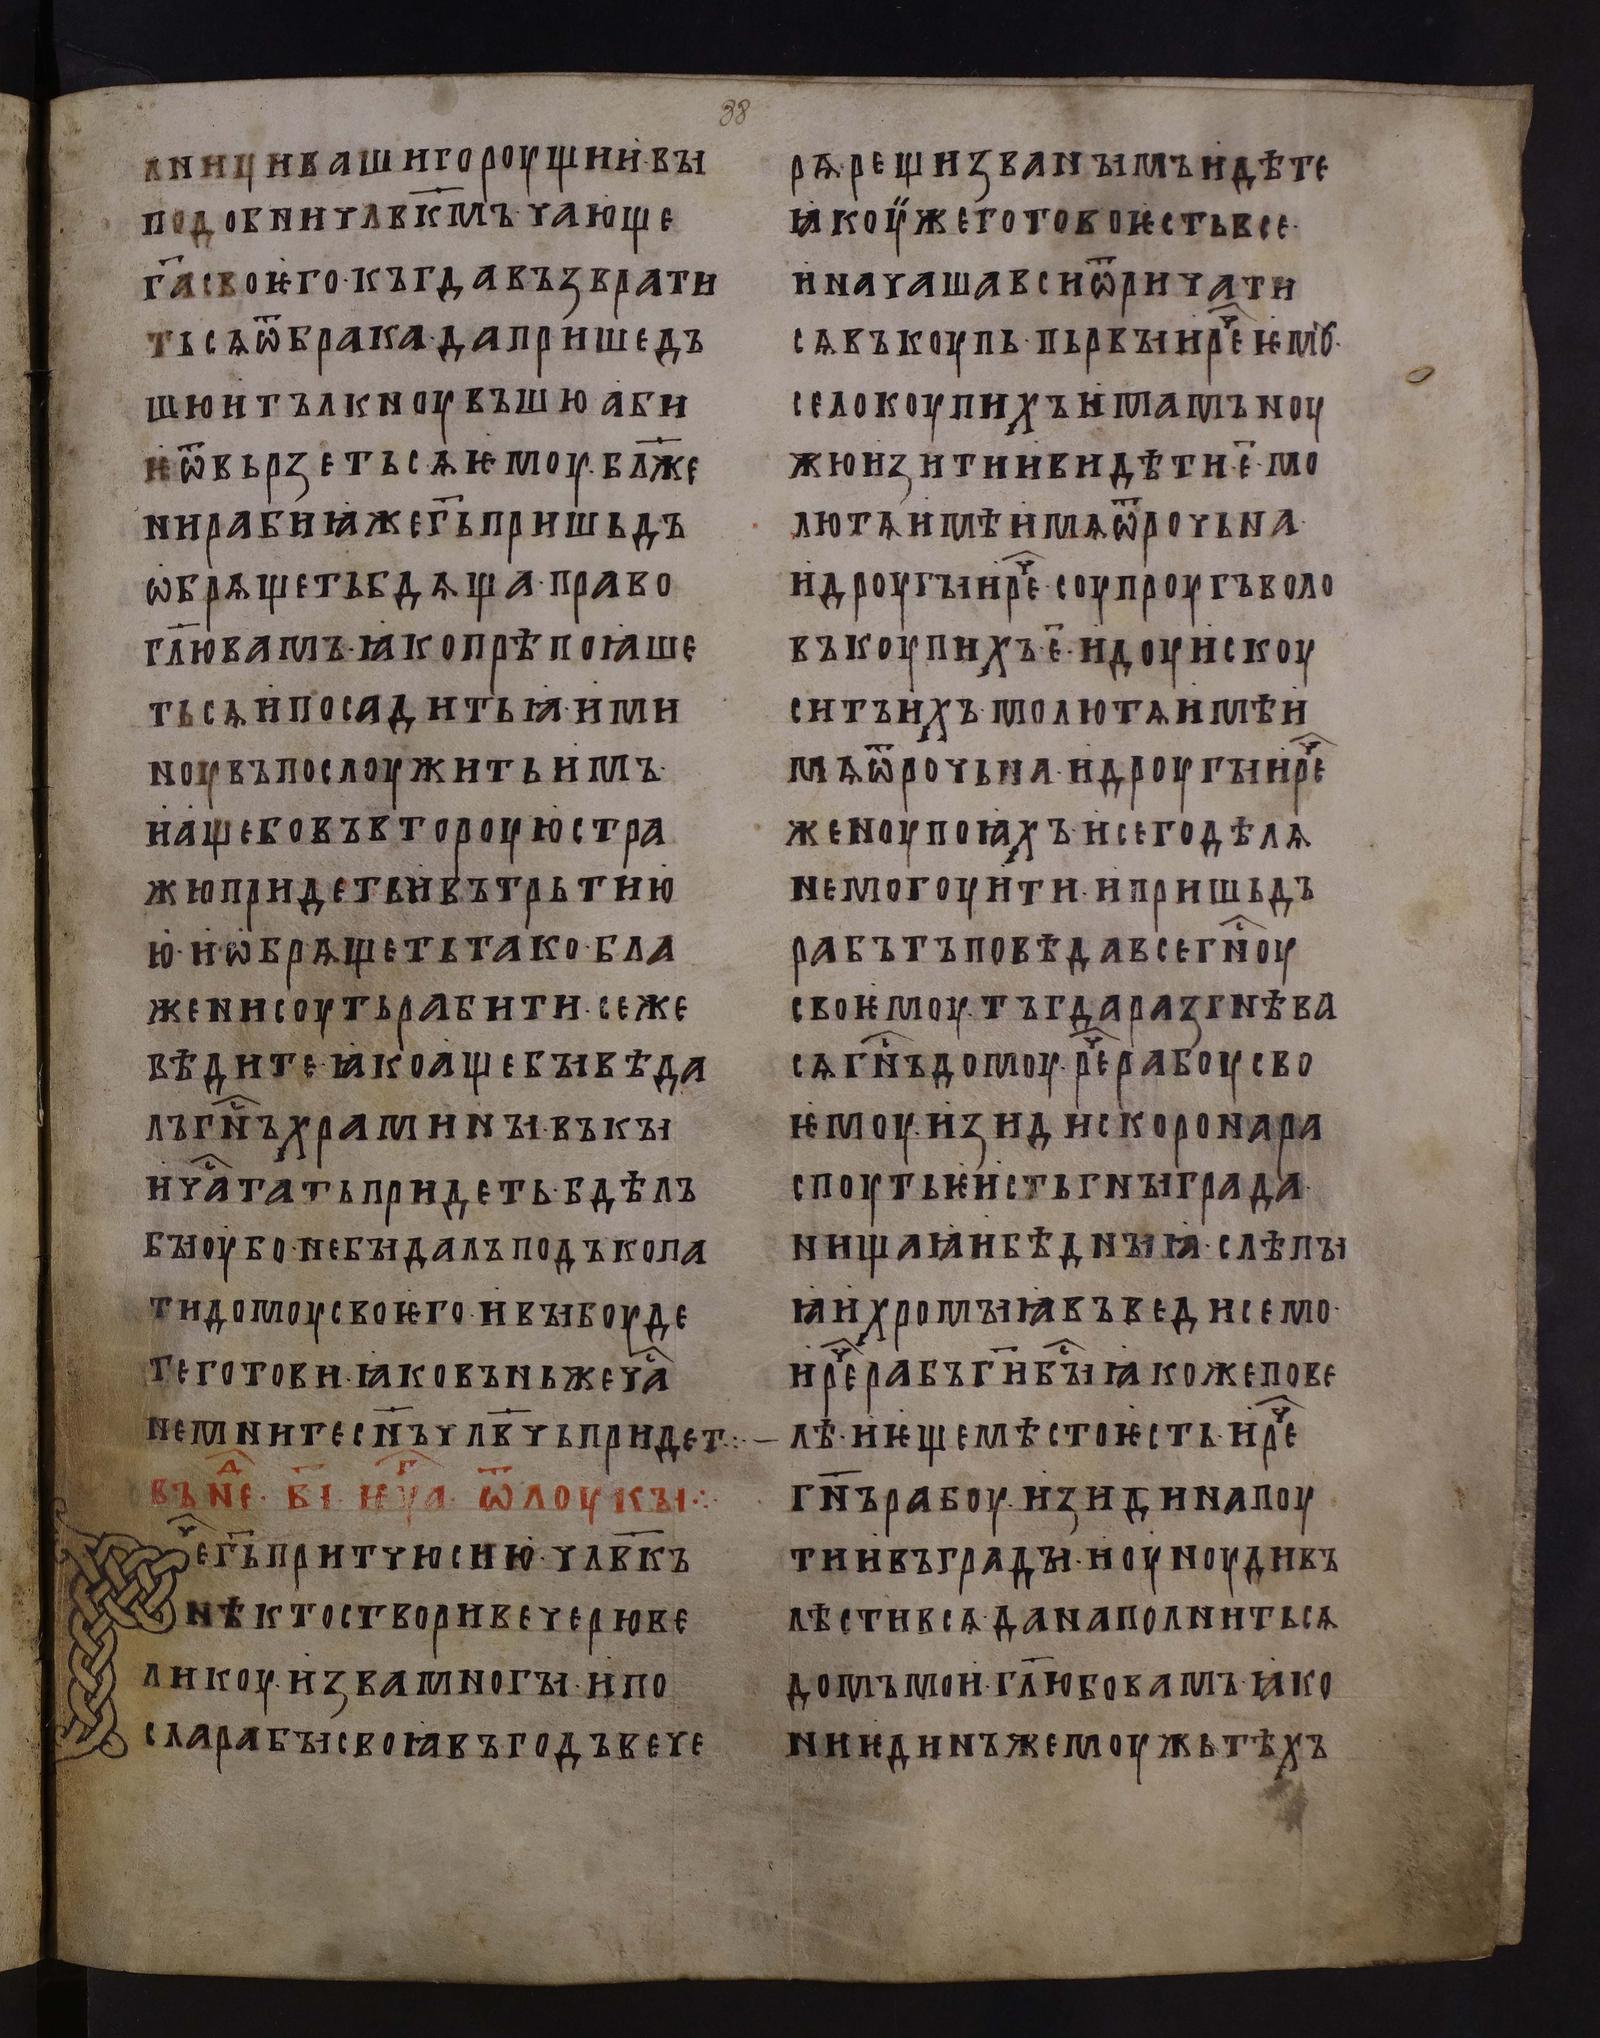 38
лници ваши горѹщи и҆ вꙑ
подобни члв҃кмъ чающе
га҃ своѥго · къгда възврати
тьсѧ ѿ брака · да пришедъ
шю и тълкнѹвъшю аби
ѥ ѿвьрзетьсѧ ѥмѹ · блж҃е
ни раби ꙗже гь҃ пришьдъ
ѡбрѧщеть бдѧща · право
гл҃ю вамъ · ꙗко прѣпоꙗше
тьсѧ и посадить ꙗ · и ми
нѹвъ послѹжить имъ ·
и аще бо въ вторѹю стра
жю придеть и въ трьтию
ю · и ѡбрѧщеть тако · бла
жени сѹть раби ти · се же
вѣдите · ꙗко аще бꙑ вѣда
лъ гн҃ъ храминꙑ · въ кꙑ
и ча҃ тать придеть · бдѣлъ
бꙑ ѹбо · не бꙑ далъ подъкопа
ти домѹ своѥго · и вꙑ бѹде
те готови · ꙗко въ ньже ча҃
не мните сн҃ъ члв҃чь придет ⁘ —
въ нед҃ · в҃ı · ѥуаг҃ · ѿ лѹкꙑ ⁘
Реч҃ гь҃ притчю сию · члв҃къ
нѣкто створи вечерю ве
ликѹ · и зва многꙑ · и по
сла рабꙑ своꙗ въ годъ вече
рѧ · рещи званꙑмъ идѣте
ꙗко ѹже готово ѥсть все ·
и начаша вси ѿричати
сѧ въкѹпь · пьрвꙑи реч҃ ѥмѹ ·
село кѹпихъ имамъ нѹ
жю изити и видѣти е҃ · мо
лю тѧ имѣи мѧ ѿрочьна ·
и дрѹгꙑи реч҃ · сѹпрѹгъ воло
въ кѹпихъ · е҃ · и дѹ искѹ
ситъ ихъ · молю тѧ имѣи
мѧ ѿрочьна · и дрѹгꙑи реч҃
женѹ поꙗхъ · и сего дѣлѧ
не могѹ ити · и пришьдъ
рабъ тъ повѣда все гн҃ѹ
своѥмѹ · тъгда разгнѣва
сѧ гн҃ъ домѹ · реч҃ рабѹ сво
ѥмѹ · изиди скоро на ра
спѹтьѥ и стьгнꙑ града ·
нищаꙗ и бѣднꙑꙗ · слѣпꙑ
ꙗ и хромꙑꙗ въведи семо ·
и реч҃ рабъ гн҃ бꙑ҃ ꙗкоже пове
лѣ · и ѥще мѣсто ѥсть · и реч҃
гн҃ъ рабѹ · изиди на пѹ
ти и въ градꙑ · и ѹнѹди въ
лѣсти всѧ · да наполнитьсѧ
домъ мои · гл҃ю бо вамъ · ꙗко
ни ѥдинъ же мѹжь тѣхъ